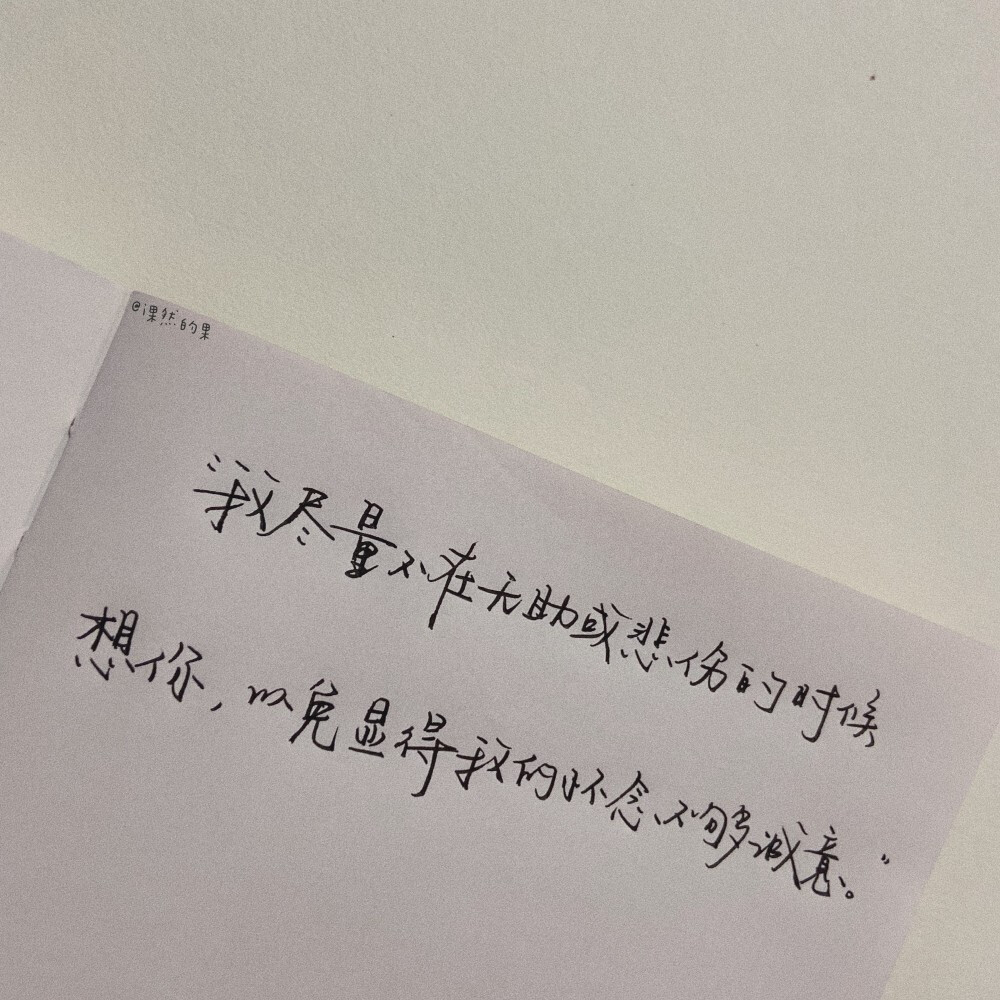 @课然的果
“我尽量不在无助或悲伤的时候
想你，以免显得我的怀念不够诚意。”